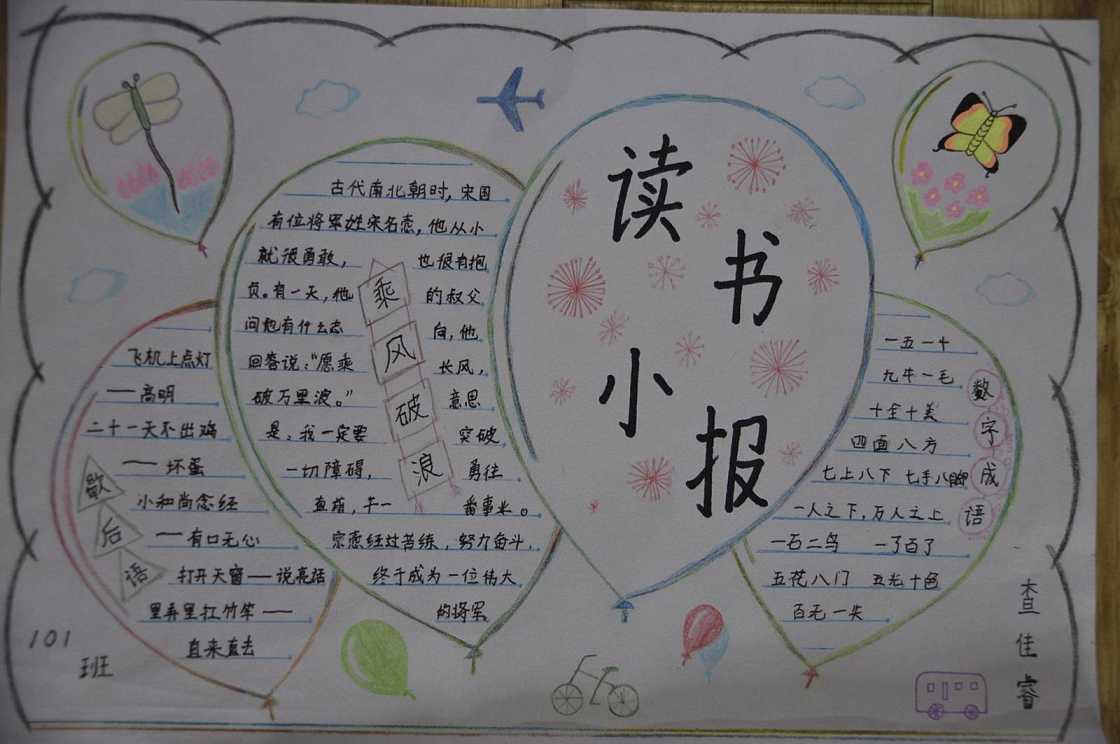 读书小报
古代南北朝时，宋国
有位将军姓宋名悫，他从小
就很勇敢，也很有抱
负。有一天，他的叔父
问他有什么志向，他
回答说："愿乘长风，
破万里浪。"意思
是：我一定要突破
一切障碍，勇往
直前，干一番事业。
宗悫经过苦练，努力奋斗，
终于成为一位伟大
的将军
乘风破浪
歇后语
飞机上点灯
——高明
二十一天不出鸡
——坏蛋
小和尚念经
——有口无心
打开天窗——说亮话
里弄里扛竹竿——
直来直去
数字成语
一五一十
九牛一毛
十全十美
四面八方
七上八下 七手八脚
一人之下，万人之上
一石二鸟 一了百了
五花八门 五光十色
百无一失
101
班
查佳睿